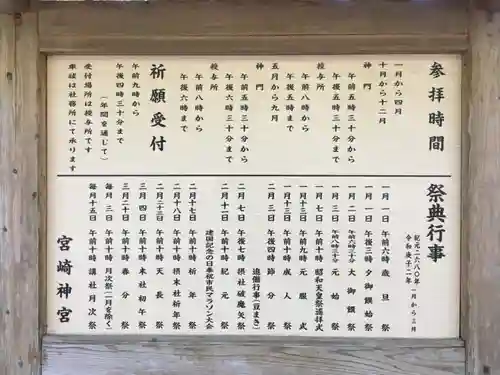 参拝時間
一月から四月
十月から十二月
神門
午前五時三十分から
午後五時三十分まで
授与所
午前八時から
午後五時まで
五月から九月
神門
午前五時三十分から
午後六時三十分まで
授与所
午前八時から
午後六時まで
祈願受付
午前九時から
午後四時三十分まで
（年間を通じて）
受付場所は授与所です
車祓は社務所にて承ります
祭典行事
紀元二六八〇年
令和庚子二年
一月から三月
一月一日 午前六時 歳旦祭
一月一日 午後三時 夕御饌始祭
一月二日 午前六時三十分 大御饌祭
一月三日 午前八時三十分 元始祭
一月七日 午前十時 昭和天皇祭遙拝式
一月十三日 午前九時 元服式
一月十三日 午前十時 成人祭
二月三日 午後四時 節分祭
追儺行事（豆まき）
二月七日 午後七時 摂社破魔矢祭
二月十一日 午前十時 紀元祭
建国記念の日奉祝市民マラソン大会
二月十七日 午前十時 祈年祭
二月十八日 午前十時 摂末社祈年祭
二月二十三日 午前十時 天長祭
三月四日 午前十時 末社初午祭
三月二十日 午前十時 春分祭
毎月三日 午前十時 月次祭（二月を除く）
毎月十五日 午前十時 講社月次祭
宮崎神宮